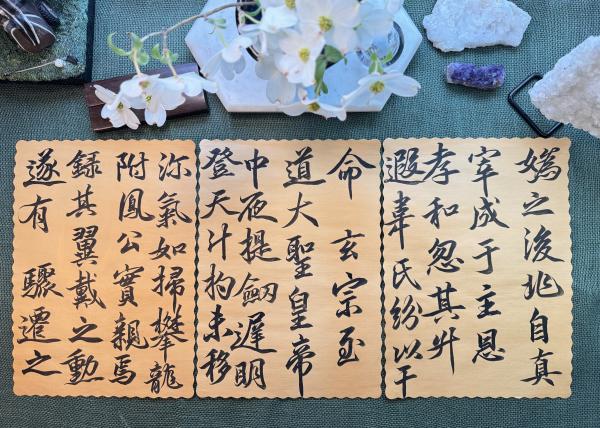 媯之後兆自真
宰成于主恩
孝和忽其升
遐韋氏紛以干
命 玄宗至
道大聖皇帝
中夜提劒遲明
登天汁杓未移
沴氣如掃攀龍
附鳳公實親焉
錄其翼戴之勳
遂有驟遷之